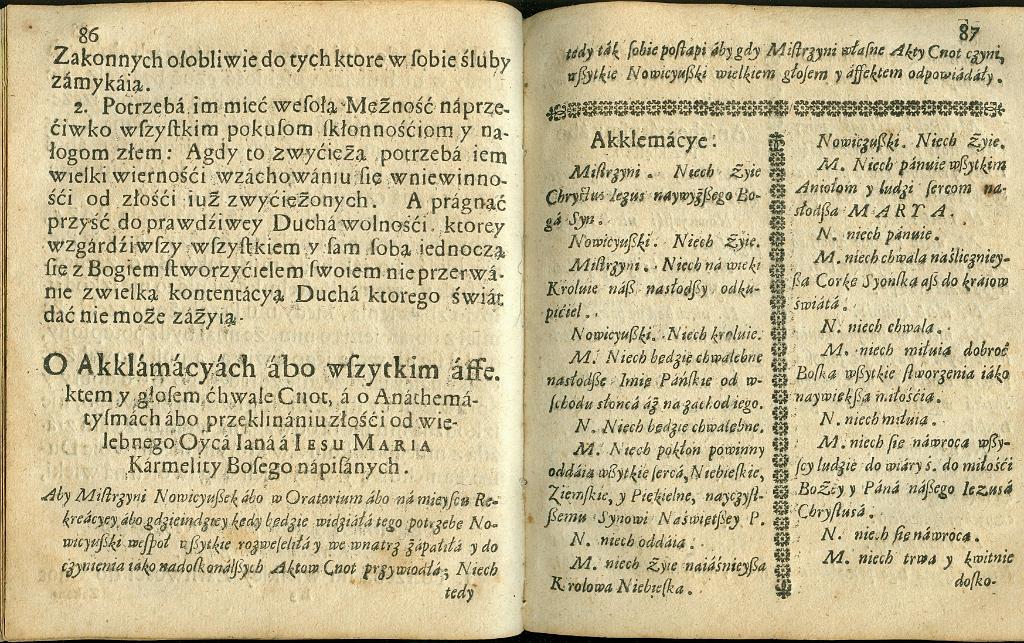 86
Zakonnych oſobliwie do tych ktore w ſobie śluby
zámykáią.
2. Potrzebá im mieć weſołą Mężność náprze-
ćiwko wſzyſtkim pokuſom ſkłonnośćiom y na-
łogom złem: Agdy to zwyćiężą potrzebá iem
wielki wiernośći wzáchowániu ſię wniewinno-
śći od złośći iuż zwyćiężonych. A prágnąć
przyść do prawdźiwey Duchá wolnośći ktorey
wzgárdźiwſzy wſzyſtkiem y ſam ſobą iednoczą
ſię z Bogiem ſtworzyćielem ſwoiem nie przerwá-
nie zwielką kontentácyą Duchá ktorego świát
dać nie może záżyią.
O Akklámácyách ábo wſzytkim áffe.
ktem y głoſem ćhwale Cnot, á o Anáthemá-
tyſmách ábo przeklinániu złośći od wie-
lebnego Oycá Ianá á IESU MARIA
Kármelity Boſego nápiſánych.
Aby Miſtrzyni Nowicyuſzek ábo w Oratorium ábo ná mieyſcu Re-
kreácyey ábo gdzieindziey kędy będzie widziáłá tego potrzebę No-
wicyuſzki weſpoł wſzytkie rozweſeliłá y we wnątrz zápaliłá y do
czynienia iáko nadoſkonálſzych Aktow Cnot przywiodłá; Niech
tedy
87
tedy ták ſobie poſtąpi áby gdy Miſtrzyni własne Akty Cnot czyni,
wſzytkie Nowicyuſzki wielkiem głoſem y áffektem odpowiádáły.
Akklemácye:
Miſtrzyni. Niech Żyie
Chryſtus Iezus naywyżſzego Bo-
gá Syn.
Nowicyuſzki. Niech Żyie.
Miſtrzyni. Niech ná wieki
Kroluie náſz nasłodſzy odku-
pićiel.
Nowicyuſzki. Niech kroluie.
M. Niech będzie chwalebne
nasłodſze Imię Páńſkie od w-
ſchodu słońcá áż na zachod iego.
N. Niech będzie chwalebne.
M. Niech pokłon powinny
oddáią wſzytkie ſercá, Niebieſkie,
Ziemſkie, y Piekielne, nayczyſt-
ſzemu Synowi Naświętſzey P.
N. niech oddáią.
M. niech Żyie naiáśnieyſza
Krolowa Niebieſka.
Nowiczuſzki. Niech Żyie.
M. Niech pánuie wſzytkim
Aniołom y ludzi ſercom na-
słodſza MARYA.
N. niech pánuie.
M. niech chwalą naśliczniey-
ſzą Corkę Syońſką aſz do kráiow
świátá.
N. niech chwalą.
M. niech miłuią dobroć
Boſką wſzytkie ſtworzenia iáko
naywiękſzą miłośćią.
N. niech miłuią.
M. niech ſię náwrocą wſzy-
ſcy ludzie do wiáry ś. do miłośći
Bożey y Páná náſzego Iezusá
Chryſtusá.
N. niech ſię náwrocą.
M. niech trwa y kwitnie
doſko-